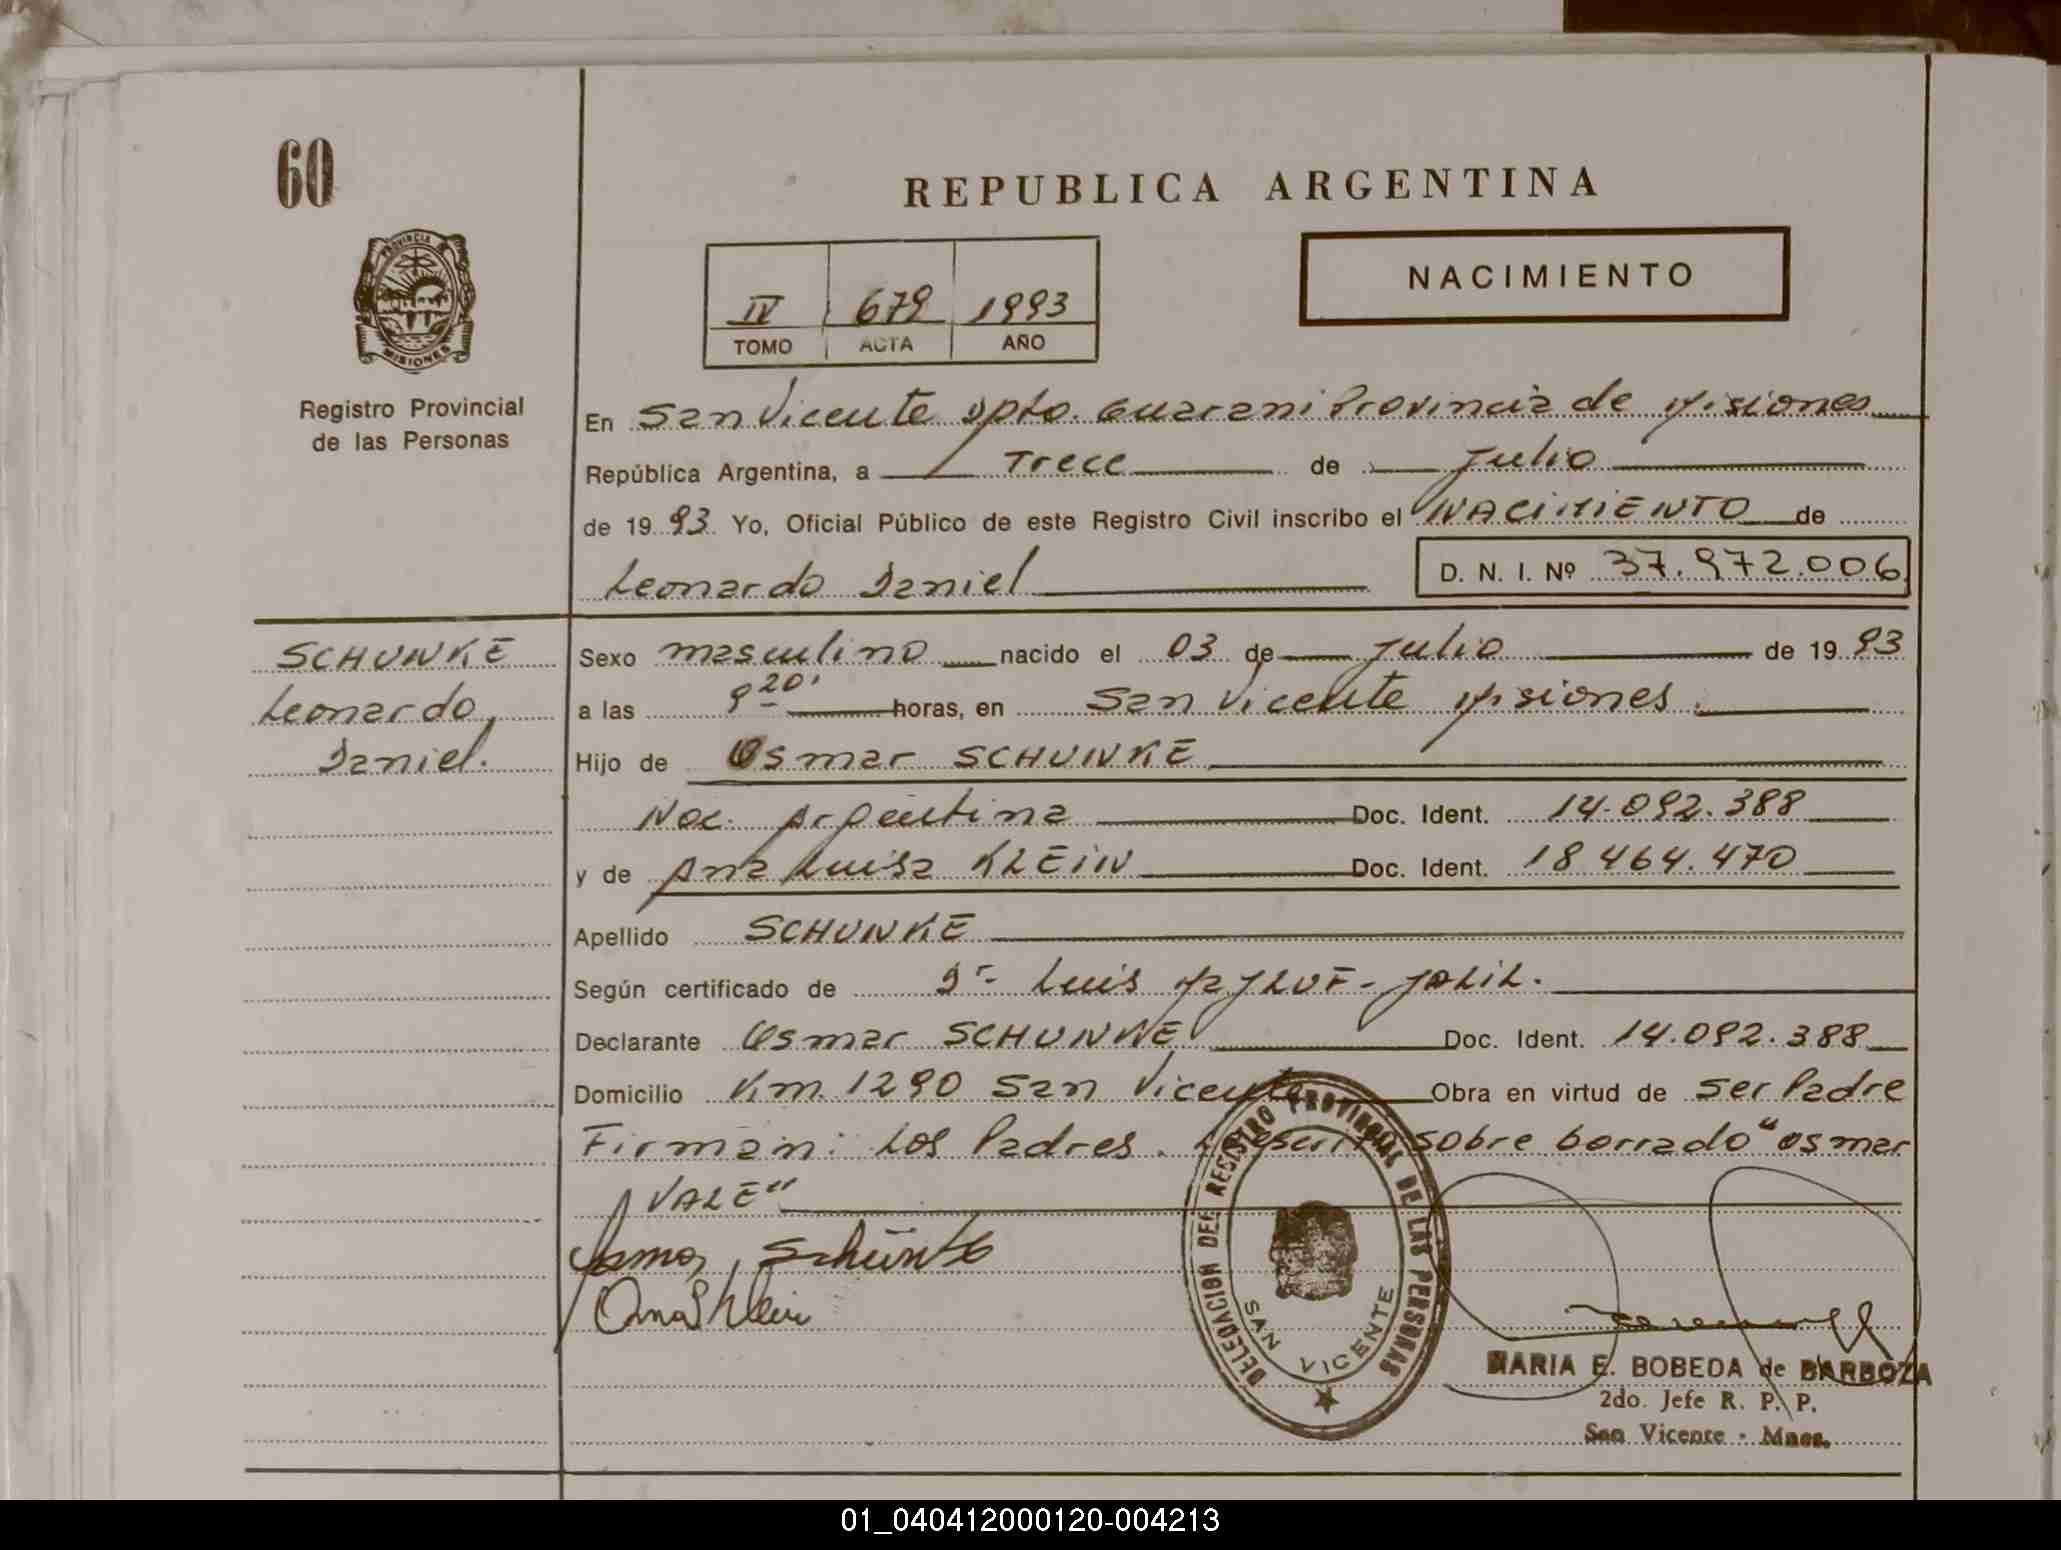 60
REPUBLICA ARGENTINA
PROVINCIA DE
MISIONES
IV 679 1993
TOMO ACTA AÑO
NACIMIENTO
Registro Provincial
de las Personas
En San Vicente Dpto. Guarani Provincia de Misiones
República Argentina, a Trece de Julio
de 1993 Yo, Oficial Público de este Registro Civil inscribo el NACIMIENTO de
Leonardo Daniel D. N. I. Nº 37.972.006
SCHUNKE
Leonardo
Daniel.
Sexo masculino nacido el 03 de Julio de 1993
a las 9 20' horas, en San Vicente Misiones.
Hijo de Osmar SCHUNKE
Nac. Argentina Doc. Ident. 14.092.388
y de Ana Luisa KLEIN Doc. Ident. 18464.470
Apellido SCHUNKE
Según certificado de Dr. Luis JALIL.
Declarante Osmar SCHUNKE Doc. Ident. 14.092.388
Domicilio Km. 1290 San Vicente Obra en virtud de ser Padre
Firman: Los Padres. sobre borrado "Osmar
VALE"
Schünke
Ana Klein
DELEGACION DEL REGISTRO PROVINCIAL DE LAS PERSONAS
SAN VICENTE
MARIA E. BOBEDA de BARBOZA
2do. Jefe R. P. P.
San Vicente - Mnes.
01_040412000120-004213